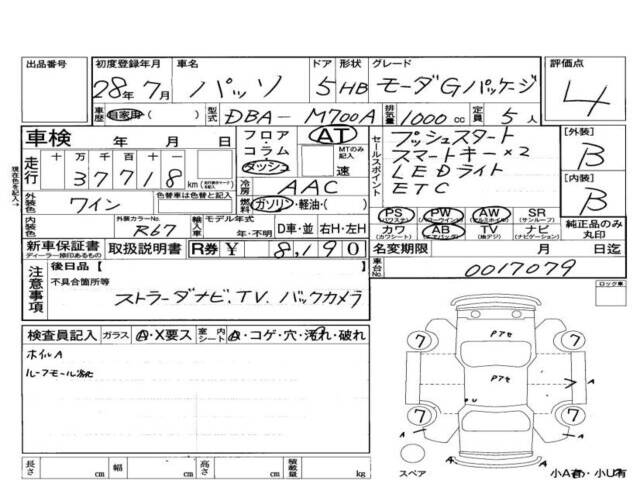 出品番号 初度登録年月 車名 ドア 形状 グレード 評価点
28年7月 パッソ 5 HB モーダGパッケージ 4
車歴 自家用( ) 型式 DBA-M700A 排気量 1000 cc 定員 5 人
車検 年 月 日
フロア・コラム・ダッシュ AT MTのみ記入 速
セールスポイント
プッシュスタート
スマートキー×2
LEDライト
ETC
[外装] B
[内装] B
走行 十 万 千 百 十 一
37718 km
冷房 AAC
外装色 ワイン 色替車は色替と記入
燃料 ガソリン・軽油・( )
PS PW AW SR(サンルーフ)
カワ(カワシート) AB TV(地デジ) ナビ(ナビゲーション)
純正品のみ丸印
内装色 外装カラーNo. R67 輸入車 モデル年式 年・不明 D車・並 右H・左H
新車保証書 ディーラー捺印あるもの 取扱説明書 R券 ¥ 8,190
名変期限 月 日迄
現在色を記入
注意事項
後日品【
不具合箇所等
ストラーダナビ、TV、バックカメラ
車台No. 0017079
ロック車
検査員記入 ガラス A・X要ス 室内シート A・コゲ・穴・汚れ・破れ
ホイルA
ルーフモール劣化
7 7
7 7
Pアセ
Pアセ
A
A
A
スペア 小A有・小U有
長さ cm 幅 cm 高さ cm 積載量 kg